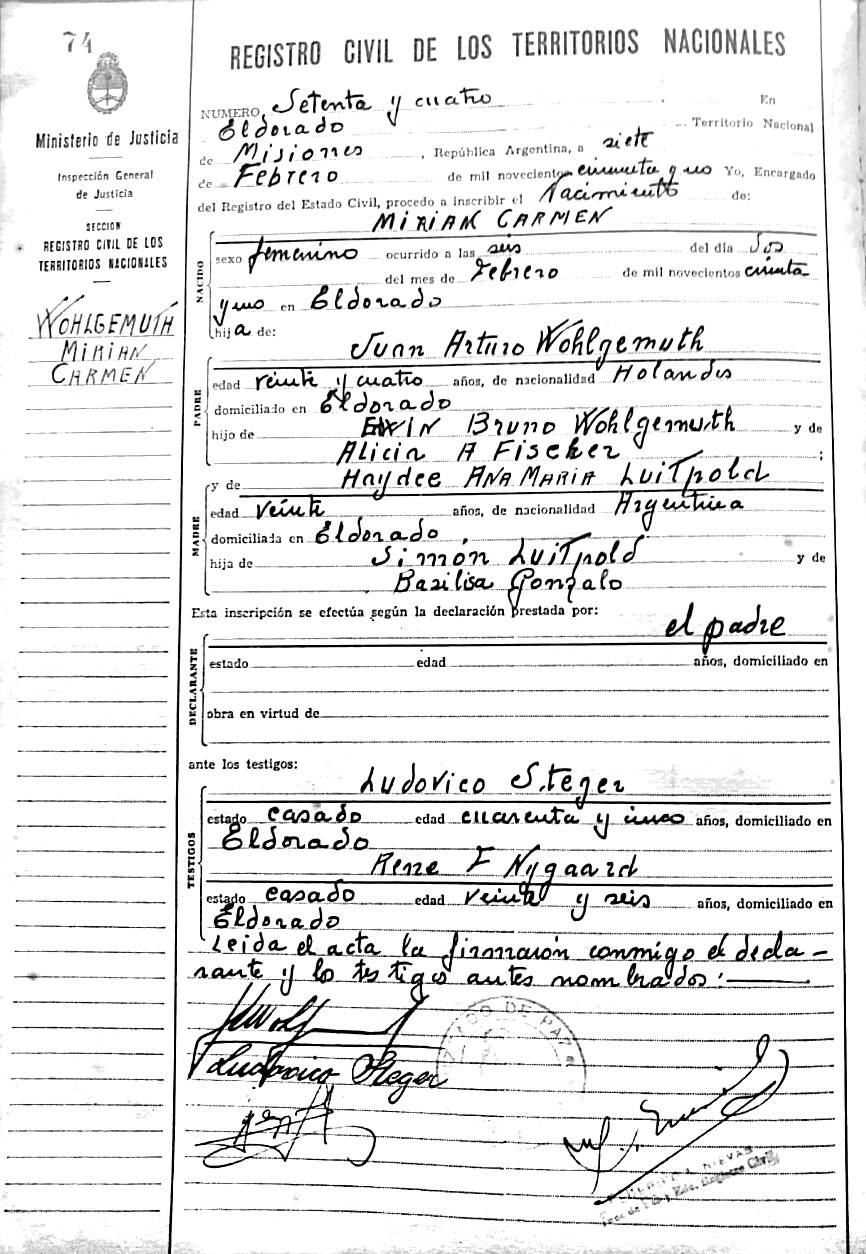 74
REGISTRO CIVIL DE LOS TERRITORIOS NACIONALES
Ministerio de Justicia
Inspección General
de Justicia
SECCION
REGISTRO CIVIL DE LOS
TERRITORIOS NACIONALES
WOHLGEMUTH
MIRIAN
CARMEN
NUMERO Setenta y cuatro En
Eldorado Territorio Nacional
de Misiones, República Argentina, a siete
de Febrero de mil novecientos cincuenta y uno Yo, Encargado
del Registro del Estado Civil, procedo a inscribir el Nacimiento de:
MIRIAN CARMEN
NACIDO
sexo femenino ocurrido a las seis del día dos
del mes de Febrero de mil novecientos cincuenta
y uno en Eldorado
hija de:
Juan Arturo Wohlgemuth
PADRE
edad veinte y cuatro años, de nacionalidad Holandés
domiciliado en Eldorado
hijo de Edwin Bruno Wohlgemuth y de
Alicia A Fischer ;
y de Haydee ANA MARIA Luitpold
MADRE
edad veinte años, de nacionalidad Argentina
domiciliada en Eldorado
hija de Simón Luitpold y de
Basilisa Gonzalo
Esta inscripción se efectúa según la declaración prestada por:
el padre
DECLARANTE
estado edad años, domiciliado en
obra en virtud de
ante los testigos:
Ludovico Steger
TESTIGOS
estado casado edad cuarenta y cinco años, domiciliado en
Eldorado
Rene F Nygaard
estado casado edad veinte y seis años, domiciliado en
Eldorado
Leida el acta la firmaron conmigo el decla-
rante y los testigos antes nombrados:
DE PAZ
Ludovico Steger